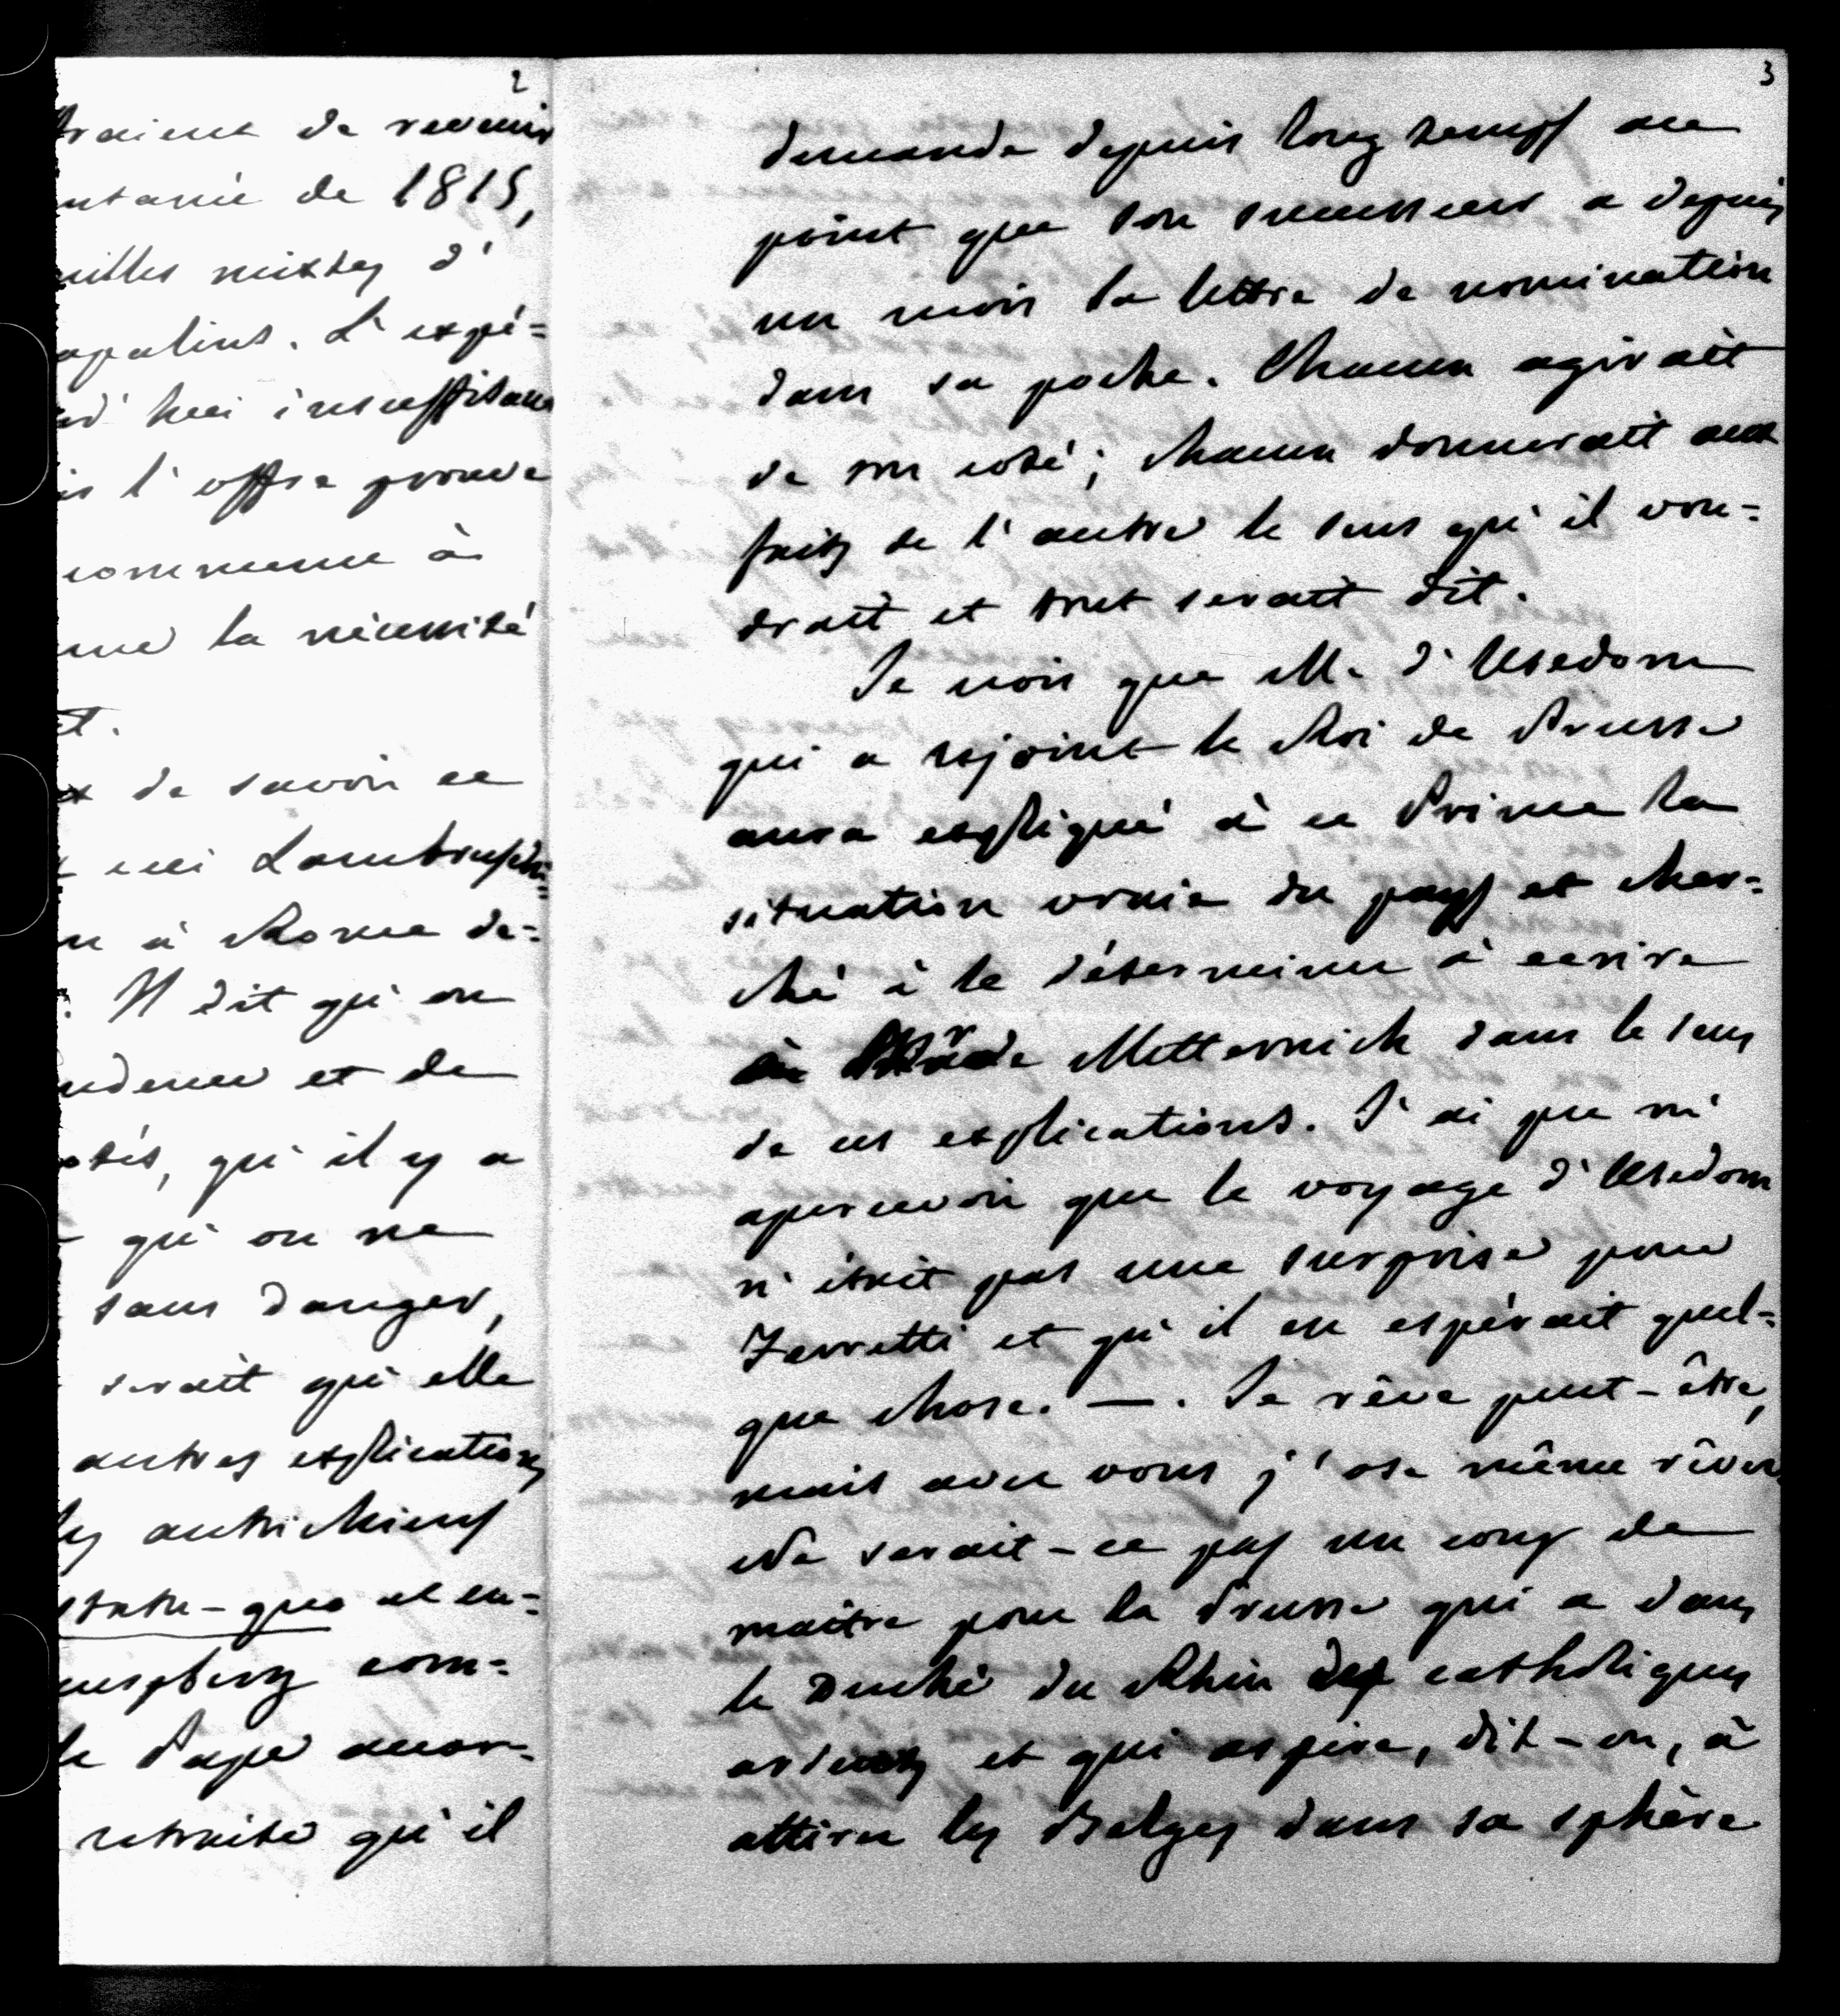 2
traient de revenir
ntanée de 1815,
uilles mixtes d'
apolins. L'expé=
rd'hui insuffisan
is l'offre prouve
commence à
me la nécessité
t.
x de savoir ce
t ici Lambruschi=
n à Rome de=
Il dit qu'on
udence et de
ôtés, qu'il y a
qu'on ne
sans danger,
serait qu'elle
autres explications
les autrichiens
statu-quo et en=
uersperg com=
le Pape accor=
retraite qu'il
3
demande depuis long temps au
point que son successeur a depuis
un mois la lettre de nomination
dans sa poche. Chacun agirait
de son coté; chacun donnerait aux
faits de l'autre le sens qu'il vou=
drait et tout serait dit.
Je vois que M. d'Usedom
qui a rejoint le Roi de Prusse
aura expliqué à ce Prince la
situation vraie du pays et cher=
ché à le déterminer à ecrire
à de Metternich dans le sens
de ces explications. J'ai pu m'
apercevoir que le voyage d'Usedom
n'était pas une surprise pour
Ferretti et qu'il en espérait quel=
que chose. —. Je rêve peut-être,
mais avec vous j'ose même rêver.
Ne serait-ce pas un coup de
maître pour la Prusse qui a dans
le Duché du Rhin des catholiques
ardents et qui aspire, dit-on, à
attirer les Belges dans sa sphère